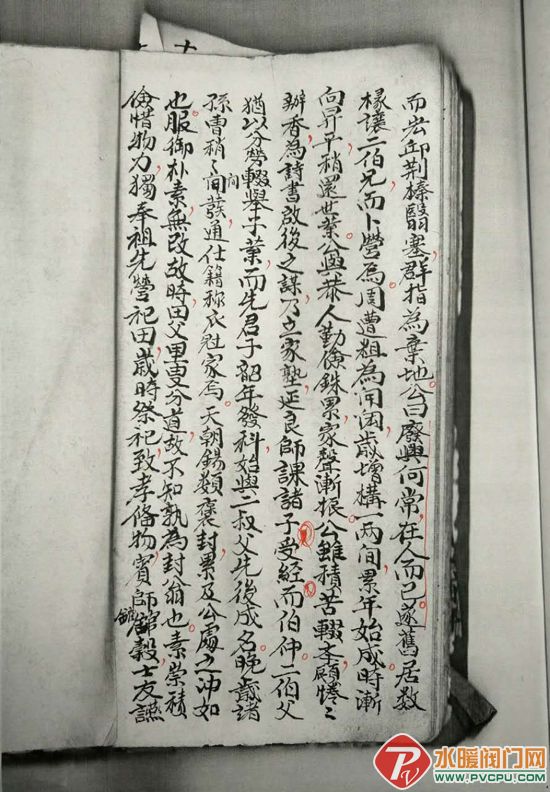 而岩卸荆榛翳塞群指為棄地公曰廢興何常在人而已遂舊居数
椽讓二伯兄而卜營焉周遭粗為開闊歲増構一两间累年始成時漸
向昇平稍還世業公與恭人勤儉銖累家聲漸振公雖積苦輟吝顧惓〻
辦香為詩書啟後之謀乃立家塾延良師課諸子受経而伯仲二伯父
猶以分勞輟舉子業而先君子韶年發科始與二叔父先後成名晚歲諸
孫曹稍〻间發通仕籍称衣冠家焉天朝錫類褒封累及公處之冲如
也服御朴素無改故時田父里叟分道故不知孰為封翁也素崇積
儉惜物力獨奉祖先營祀田歲時祭祀致孝脩物賓師館榖士友讌
间
館
水暖阀门网
WWW.PVCPU.COM